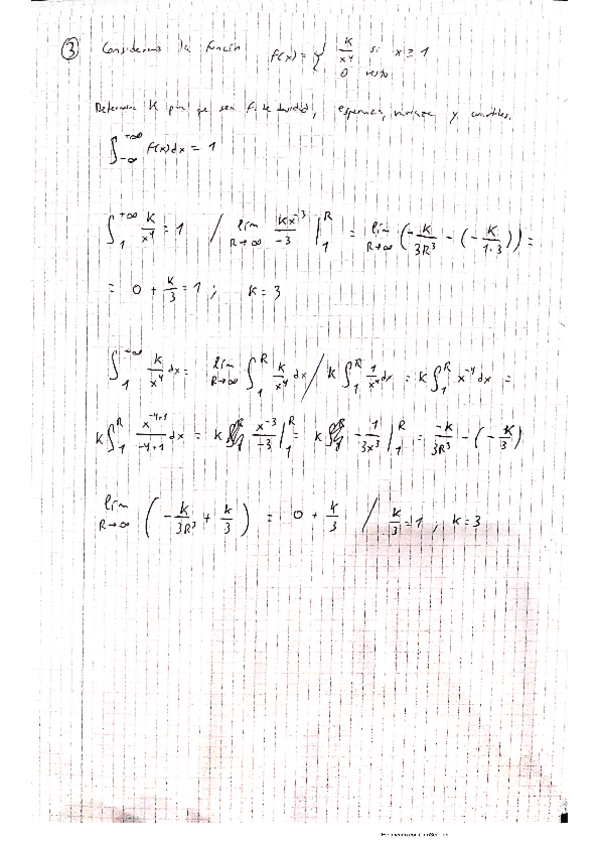 ③ Consideremos la función f(x) = { K/x⁴ si x ≥ 1
0 resto
Determina K para que sea f. de densidad, esperanza, varianza y cuantiles.
∫_{-∞}^{+∞} f(x)dx = 1
∫_1^{+∞} K/x⁴ = 1 / lim_{R→∞} Kx⁻³/-3 |_1^R = lim_{R→∞} (-K/3R³ - (-K/1·3)) =
= 0 + K/3 = 1 ; K = 3
∫_1^{+∞} K/x⁴ dx = lim_{R→∞} ∫_1^R K/x⁴ dx / K ∫_1^R 1/x⁴ dx = K ∫_1^R x⁻⁴ dx =
K ∫_1^R x^{-4+1}/-4+1 dx = K x⁻³/-3 |_1^R = K -1/3x³ |_1^R = -K/3R³ - (-K/3)
lim_{R→∞} (-K/3R³ + K/3) = 0 + K/3 / K/3 = 1 ; K = 3